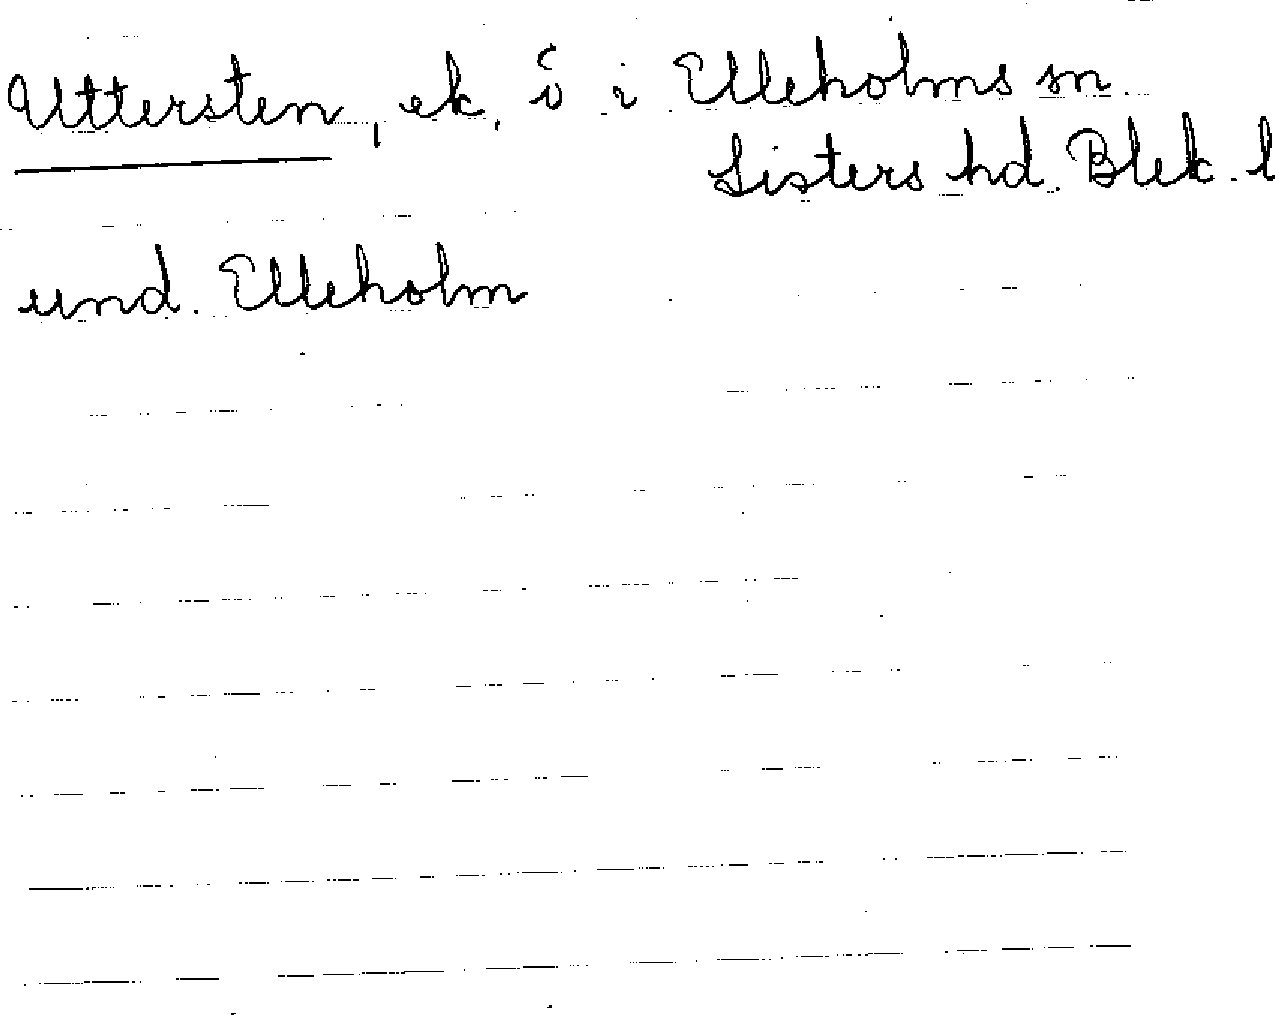 Uttersten, ek, ö i Elleholms sn.
Listers hd. Blek. l
und. Elleholm